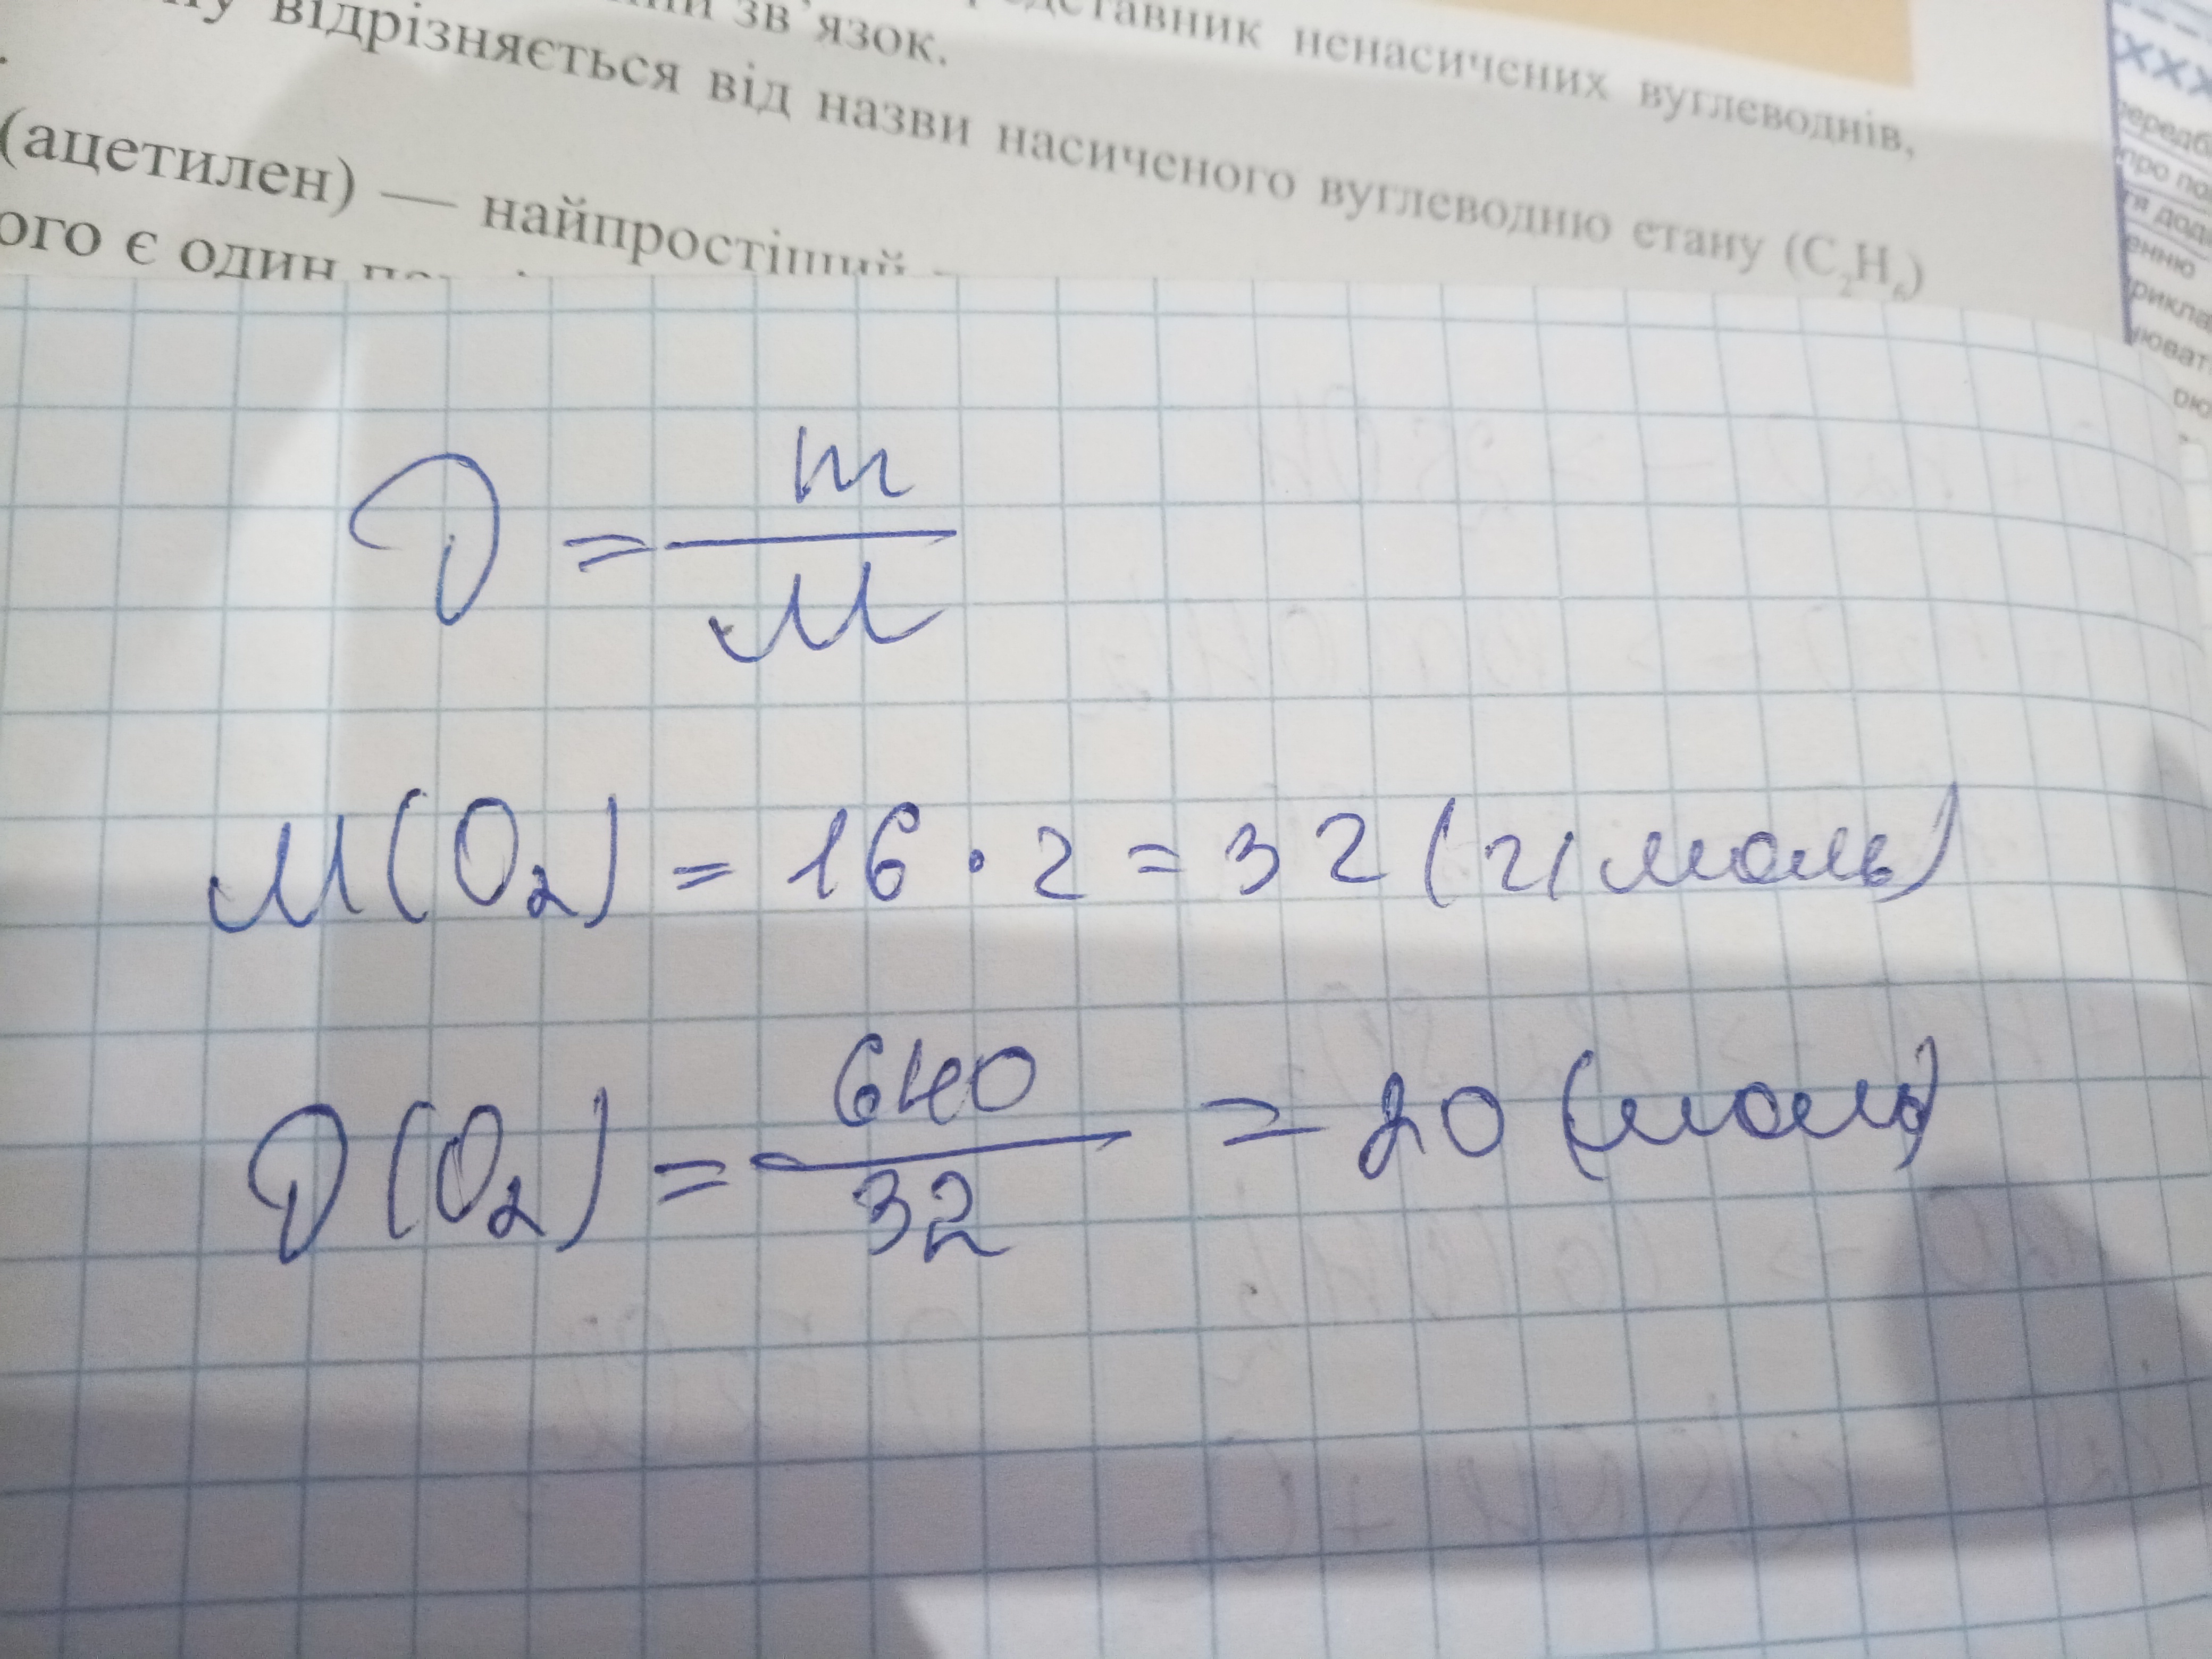 зв'язок.
редставник ненасичених вуглеводнів,
відрізняється від назви насиченого вуглеводню етану (C₂H₆)
(ацетилен) — найпростіший
ого є один
передб
про по
дод
енню
рикла
юват
рю
ν = m / M
M(O₂) = 16 · 2 = 32 (г/моль)
ν(O₂) = 640 / 32 = 20 (моль)